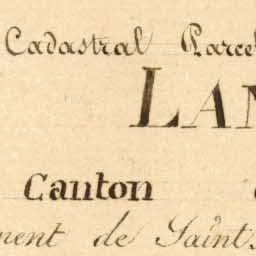 Cadastral Parcel
LAN
Canton
ment de Saint